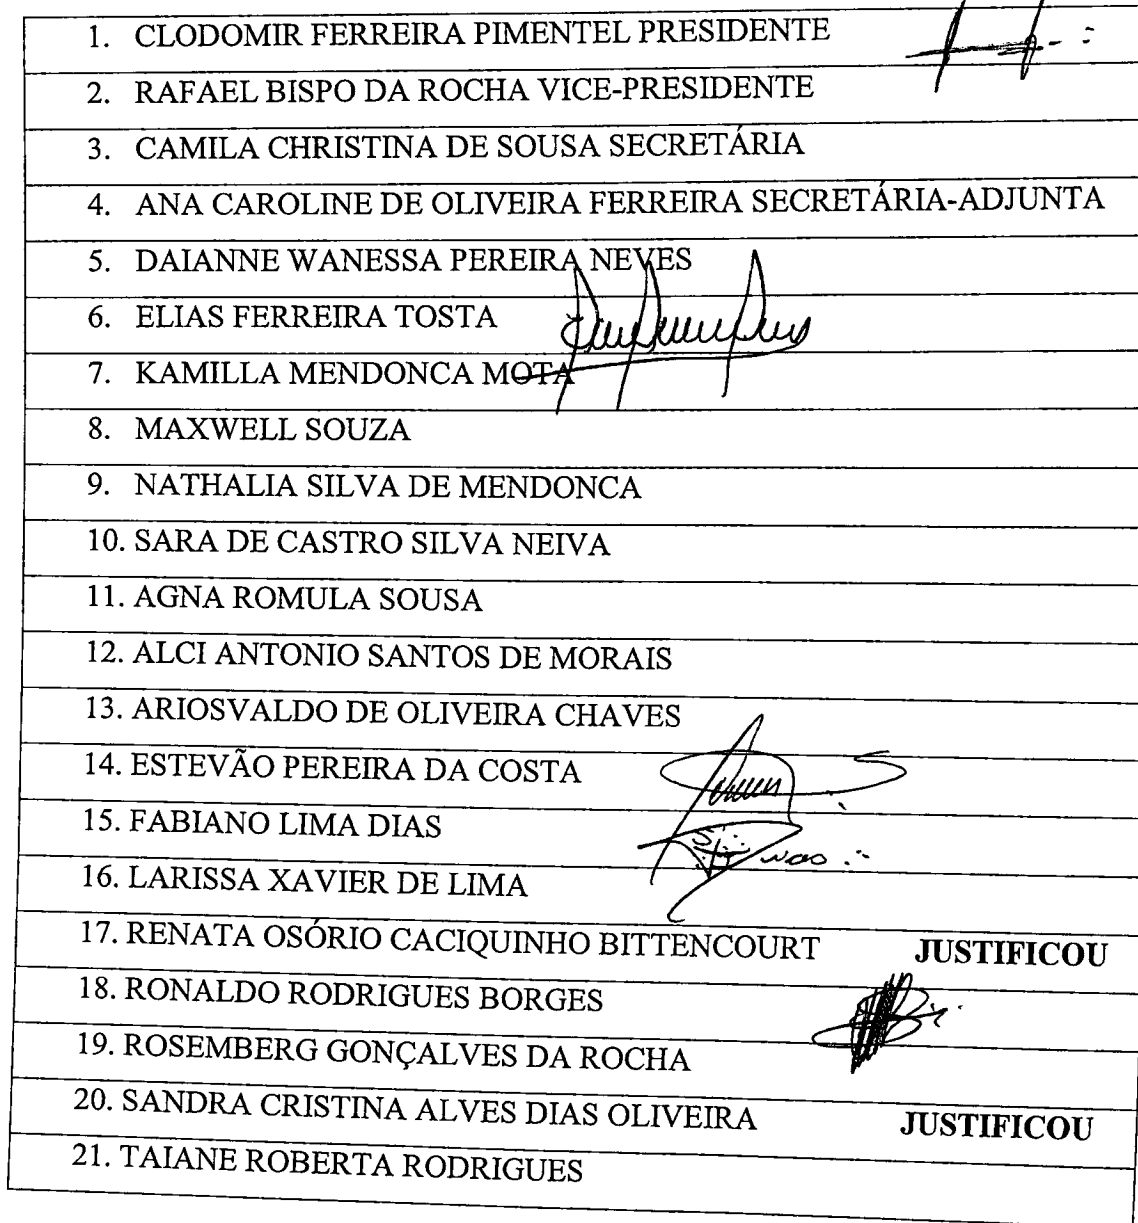 1. CLODOMIR FERREIRA PIMENTEL PRESIDENTE
2. RAFAEL BISPO DA ROCHA VICE-PRESIDENTE
3. CAMILA CHRISTINA DE SOUSA SECRETÁRIA
4. ANA CAROLINE DE OLIVEIRA FERREIRA SECRETÁRIA-ADJUNTA
5. DAIANNE WANESSA PEREIRA NEVES
6. ELIAS FERREIRA TOSTA
7. KAMILLA MENDONCA MOTA
8. MAXWELL SOUZA
9. NATHALIA SILVA DE MENDONCA
10. SARA DE CASTRO SILVA NEIVA
11. AGNA ROMULA SOUSA
12. ALCI ANTONIO SANTOS DE MORAIS
13. ARIOSVALDO DE OLIVEIRA CHAVES
14. ESTEVÃO PEREIRA DA COSTA
15. FABIANO LIMA DIAS
16. LARISSA XAVIER DE LIMA
17. RENATA OSÓRIO CACIQUINHO BITTENCOURT JUSTIFICOU
18. RONALDO RODRIGUES BORGES
19. ROSEMBERG GONÇALVES DA ROCHA
20. SANDRA CRISTINA ALVES DIAS OLIVEIRA JUSTIFICOU
21. TAIANE ROBERTA RODRIGUES